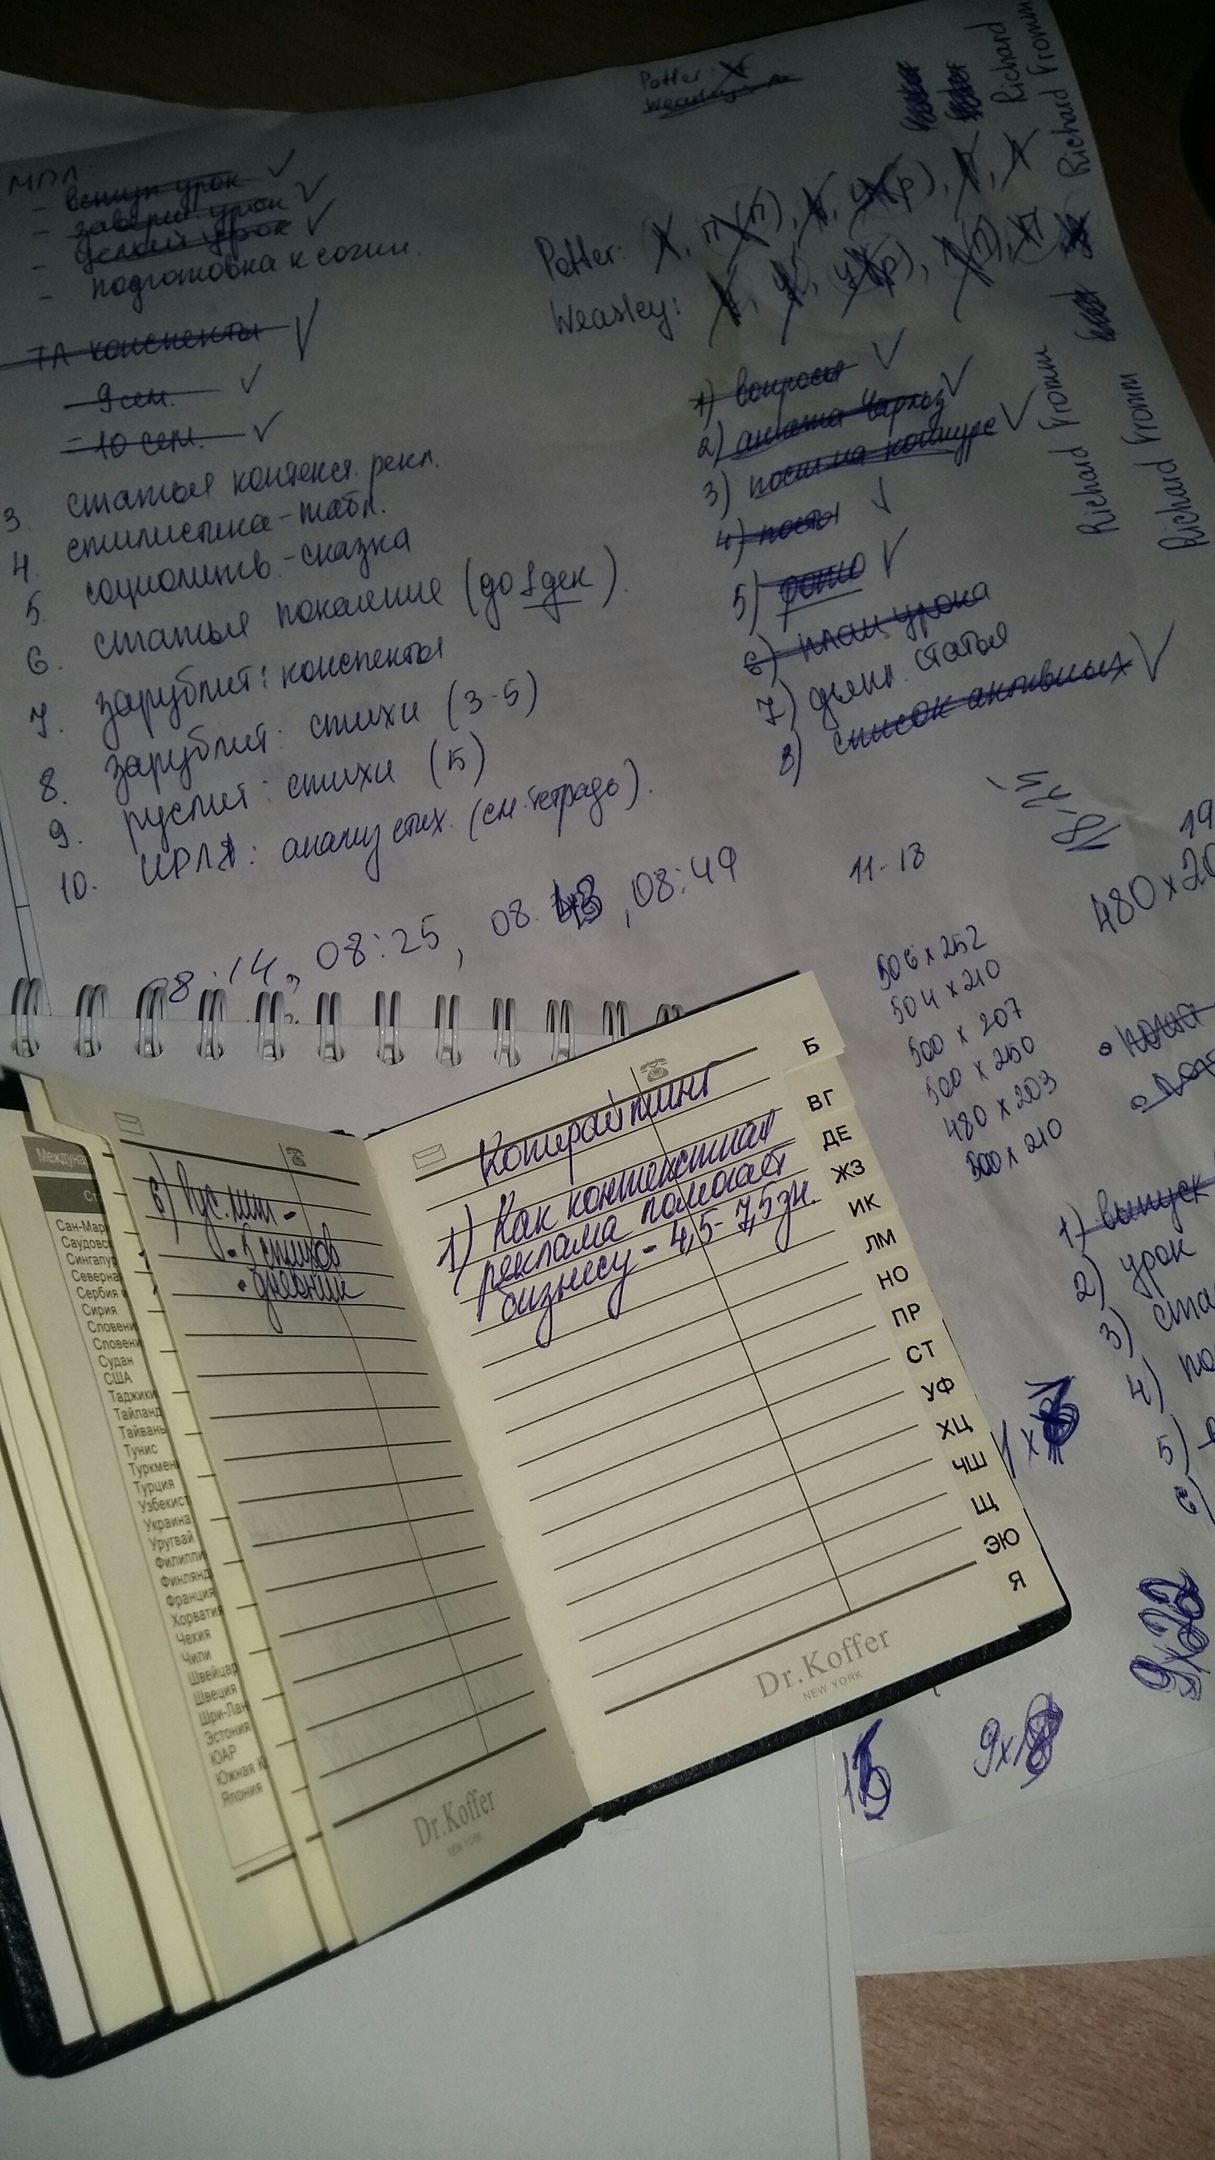 Potter:
Weasley:
Richard
Richard Fromm
МПЛ:
- вступ. урок ✓
- заверш. урок ✓
- целый урок ✓
- подготовка к сочин.
ТЛ конспекты ✓
- 9 сем. ✓
- 10 сем. ✓
3. статья контекст. рекл.
4. стилистика - табл.
5. социолингв. - сказка
6. статья поколение (до 1 дек).
7. зарублит: конспекты
8. зарублит: стихи (3-5)
9. руслит: стихи (5)
10. ИРЛЯ: анализ стих. (см. тетрадь).
08:14, 08:25, 08:43, 08:49
Potter:
Weasley:
1) вопросы ✓
2) анкета Чарльз ✓
3) пост на конкурс ✓
4) посты ✓
5) фото ✓
6) план урока
7) дьякл. статья
8) список активных ✓
Richard Fromm
Richard Fromm
11-13
18-24
19
480x20
506x252
504x210
500x207
500x250
480x203
500x210
1) выпуск
2) урок
3) ста
4) по
5)
6)
9x22
9x18
6) Рус. лит -
- 5 стихов
• дневник
Копирайтинг
1) Как контекстная
реклама помогает
бизнесу - 4,5-7,5 зн.
Б
ВГ
ДЕ
ЖЗ
ИК
ЛМ
НО
ПР
СТ
УФ
ХЦ
ЧШ
Щ
ЭЮ
Я
Междуна
Ст
Сан-Мар
Саудовс
Сингапур
Северна
Сербия и
Сирия
Словени
Словени
Судан
США
Таджики
Тайланд
Тайвань
Тунис
Туркмен
Турция
Узбекист
Украина
Уругвай
Филиппи
Финлянд
Франция
Хорватия
Чехия
Чили
Швейцар
Швеция
Шри-Лан
Эстония
ЮАР
Южная К
Япония
Dr.Koffer
NEW YORK
Dr.Koffer
NEW YORK